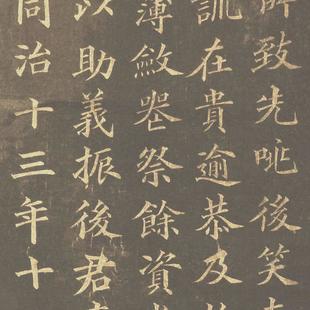 致先咷後笑
訓在貴逾恭及
薄斂罷祭餘資
以助義振後君
同治十三年十